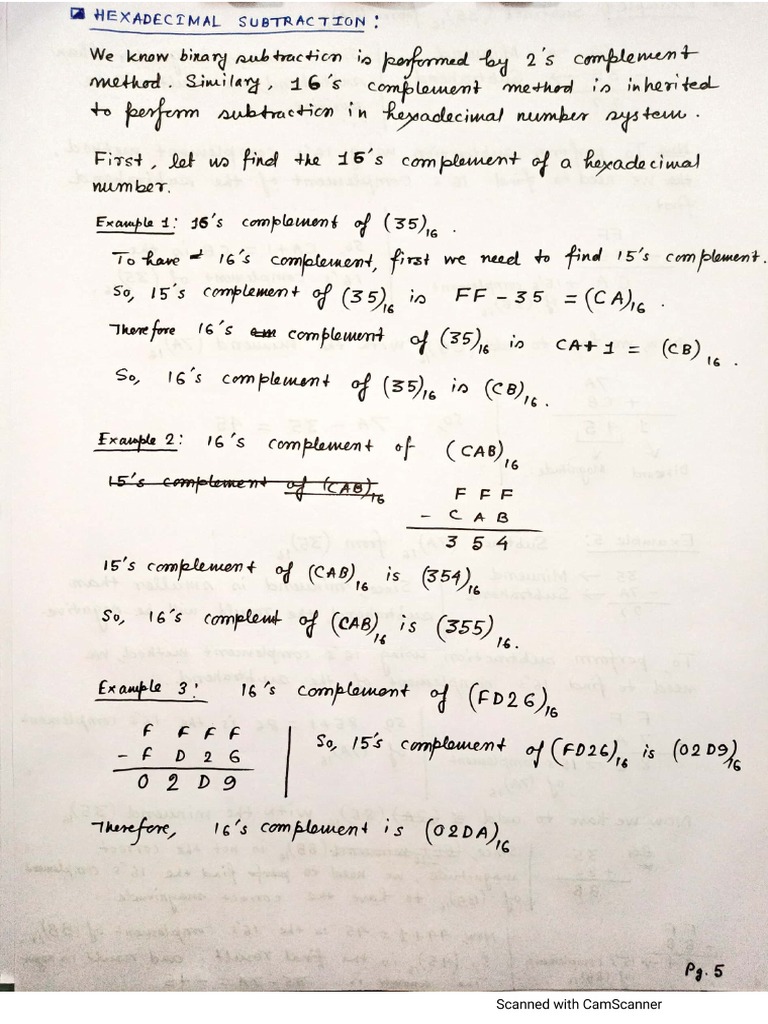 HEXADECIMAL SUBTRACTION:
We know binary subtraction is performed by 2's complement
method. Similary, 16's complement method is inherited
to perform subtraction in hexadecimal number system.
First, let us find the 16's complement of a hexadecimal
number.
Example 1: 16's complement of (35)₁₆.
To have 16's complement, first we need to find 15's complement.
So, 15's complement of (35)₁₆ is FF - 35 = (CA)₁₆.
Therefore 16's complement of (35)₁₆ is CA+1 = (CB)₁₆.
So, 16's complement of (35)₁₆ is (CB)₁₆.
Example 2: 16's complement of (CAB)₁₆
15's complement of (CAB)₁₆
F F F
- C A B
3 5 4
15's complement of (CAB)₁₆ is (354)₁₆
So, 16's complemt of (CAB)₁₆ is (355)₁₆.
Example 3: 16's complement of (FD26)₁₆
F F F F
- F D 2 6
0 2 D 9
So, 15's complement of (FD26)₁₆ is (02D9)₁₆
Therefore, 16's complement is (02DA)₁₆
Pg. 5
Scanned with CamScanner